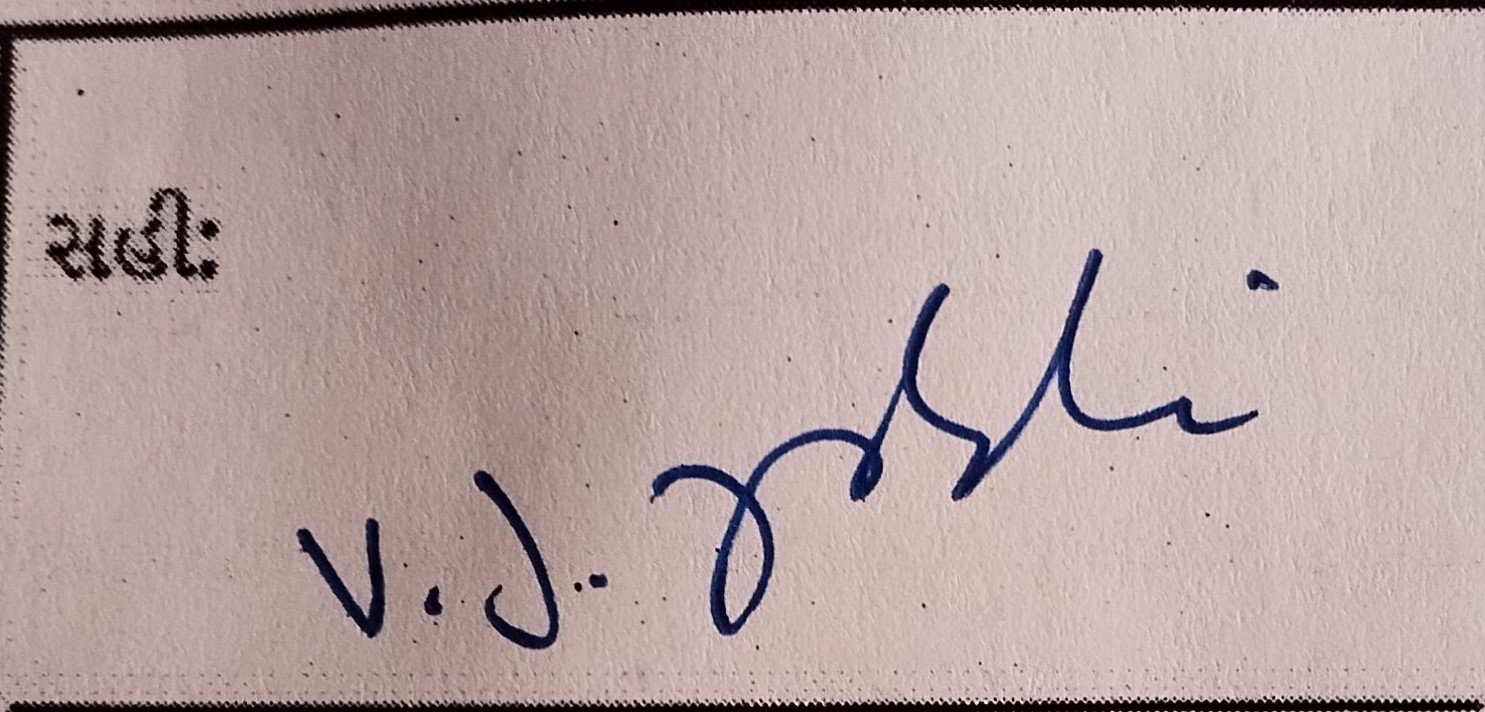 સહી:
V. J. Joshi